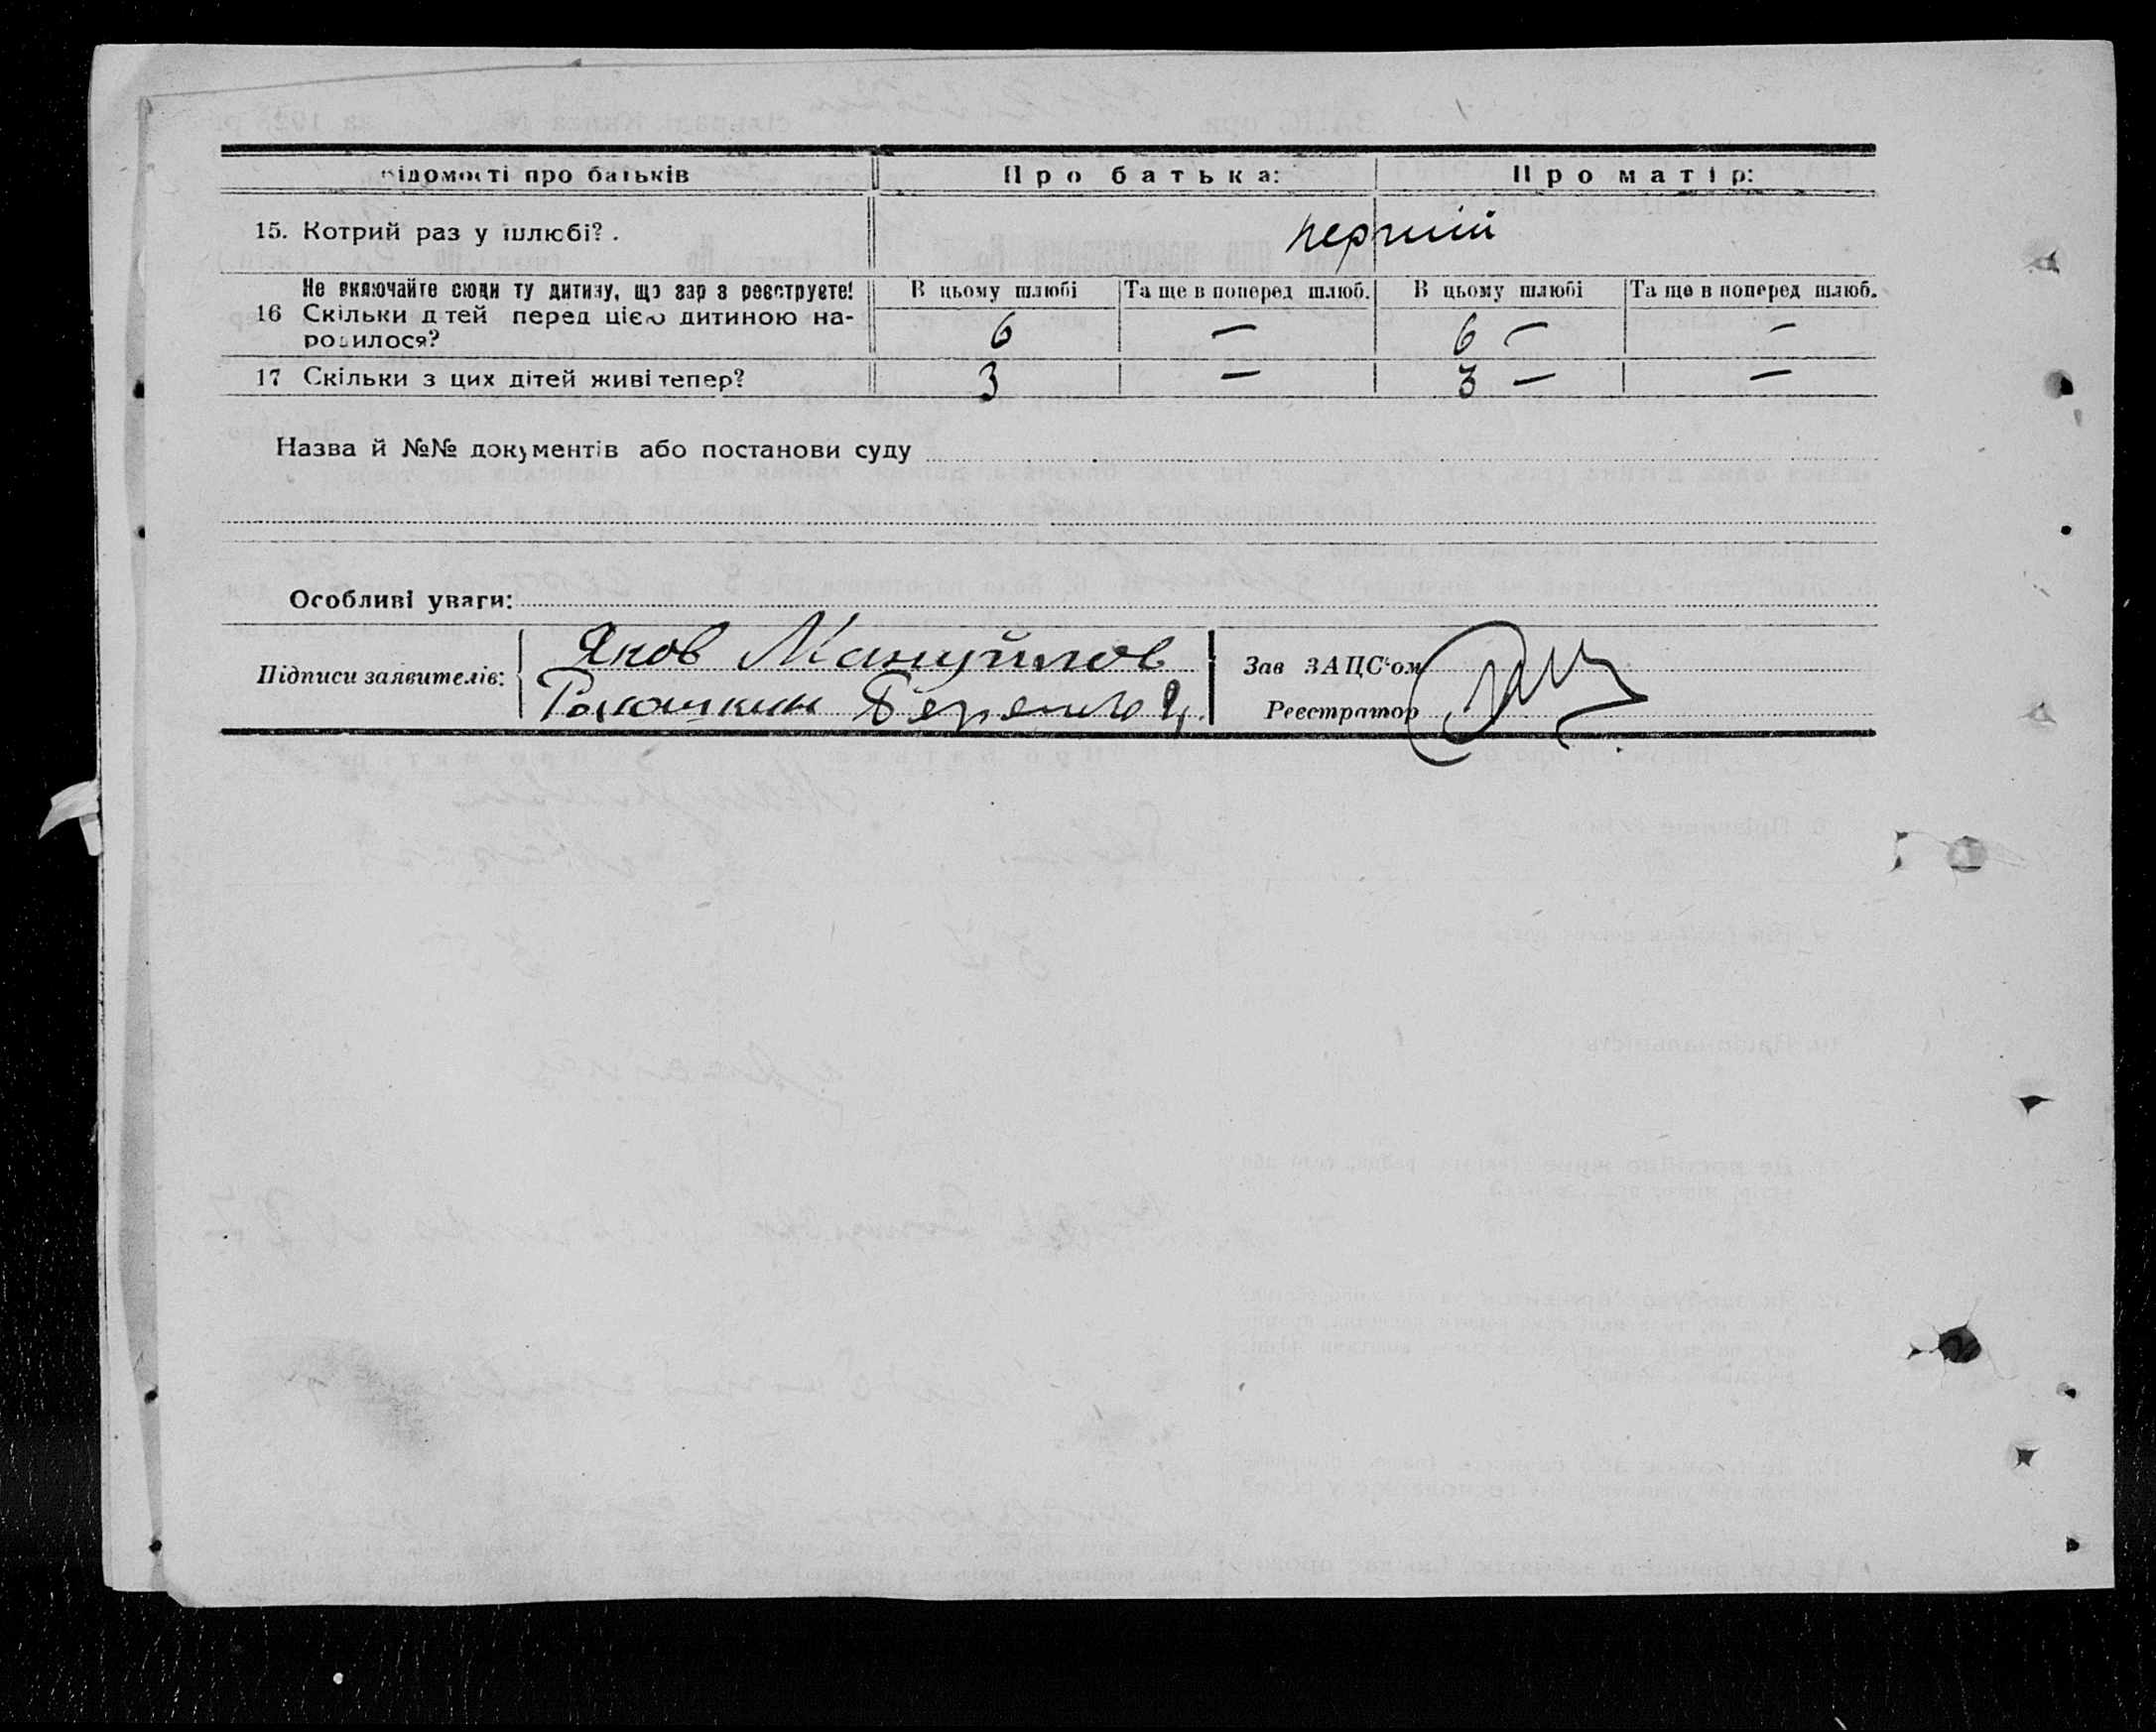 відомості про батьків Про батька: Про матір:
15. Котрий раз у шлюбі? . перший
Не включайте сюди ту дитину, що зар з реєструєте! В цьому шлюбі Та ще в поперед шлюб. В цьому шлюбі Та ще в поперед шлюб.
16 Скільки д тей перед цією дитиною на-
родилося? 6 — 6 — —
17 Скільки з цих дітей живі тепер? 3 — 3 — —
Назва й №№ документів або постанови суду
Особливі уваги:
Підписи заявителів: Яков Мануйлов
Зав ЗАЦС'ом
Реєстратор